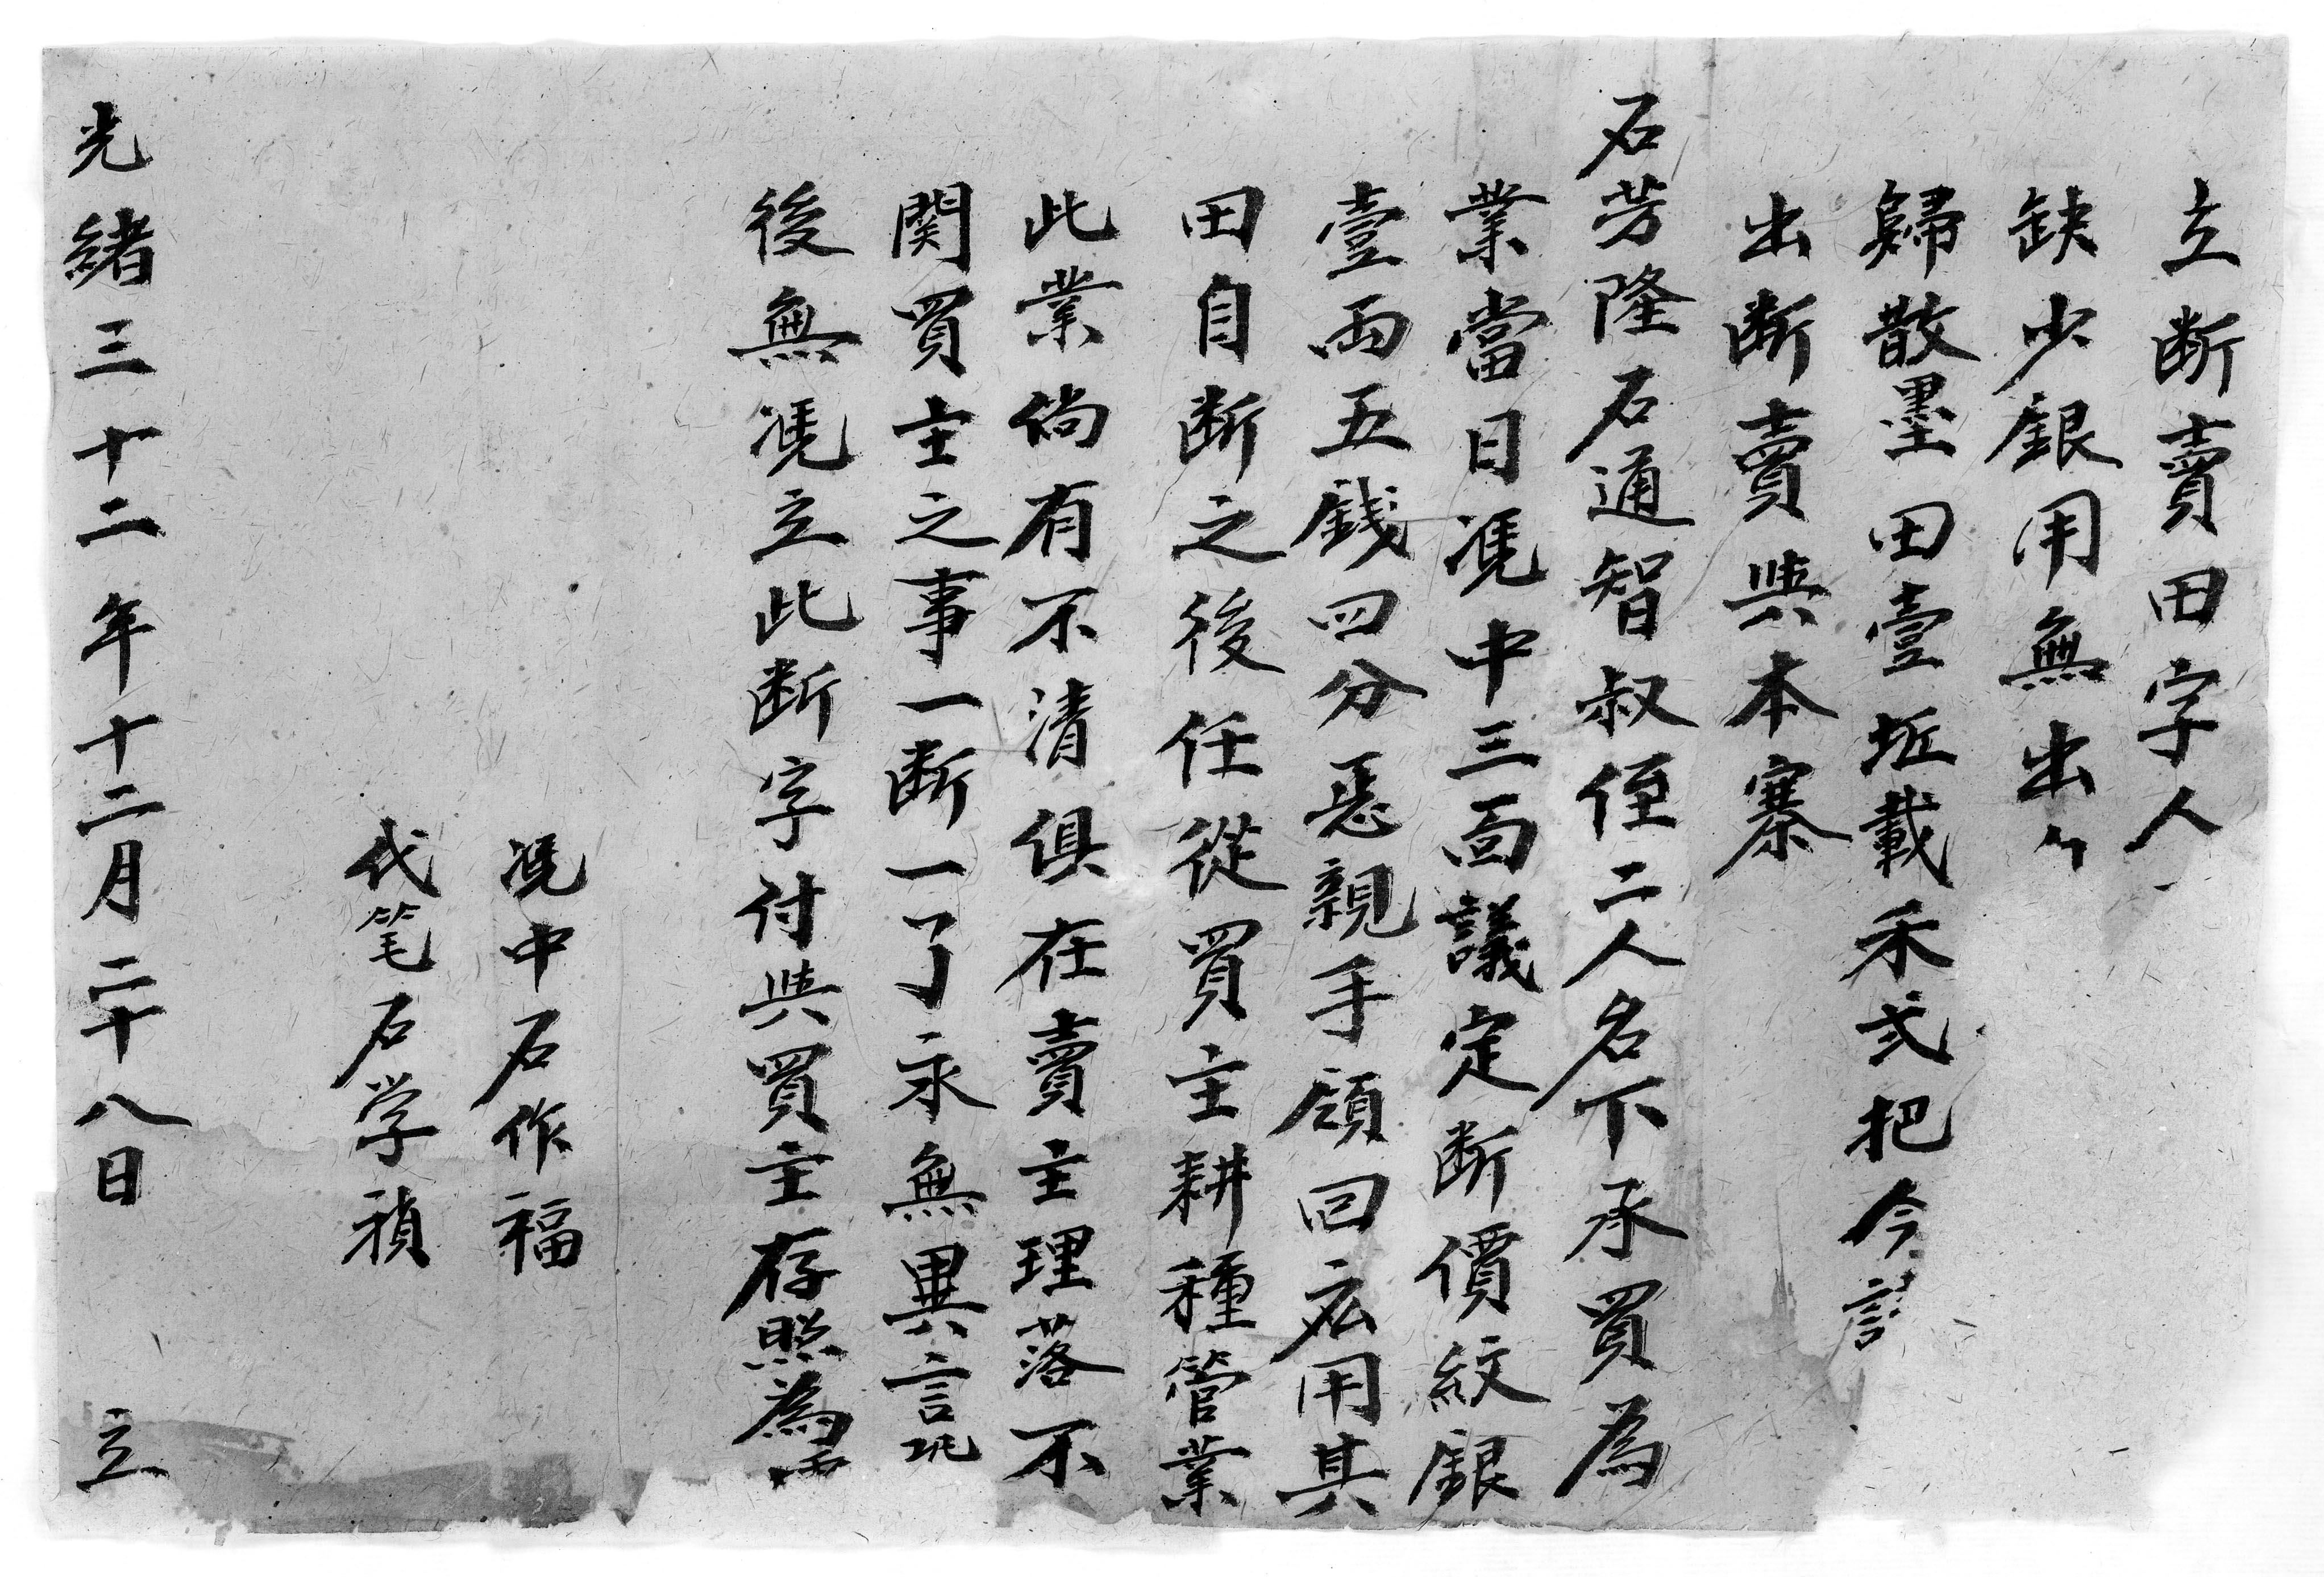 立断賣田字人
缺少銀用無出
歸散墨田壹坵載禾弍把今請
出断賣與本寨
石芳隆石通智叔侄二人名下承買為
業當日凴中三面議定断價紋銀
壹両五錢四分㤙親手領回応用其
田自断之後任從買主耕種管業
此業倘有不清俱在賣主理落不
関買主之事一断一了永無異言
後無凴立此断字付與買主存照為
凴中石作福
代笔石学禎
光緒三十二年十二月二十八日立